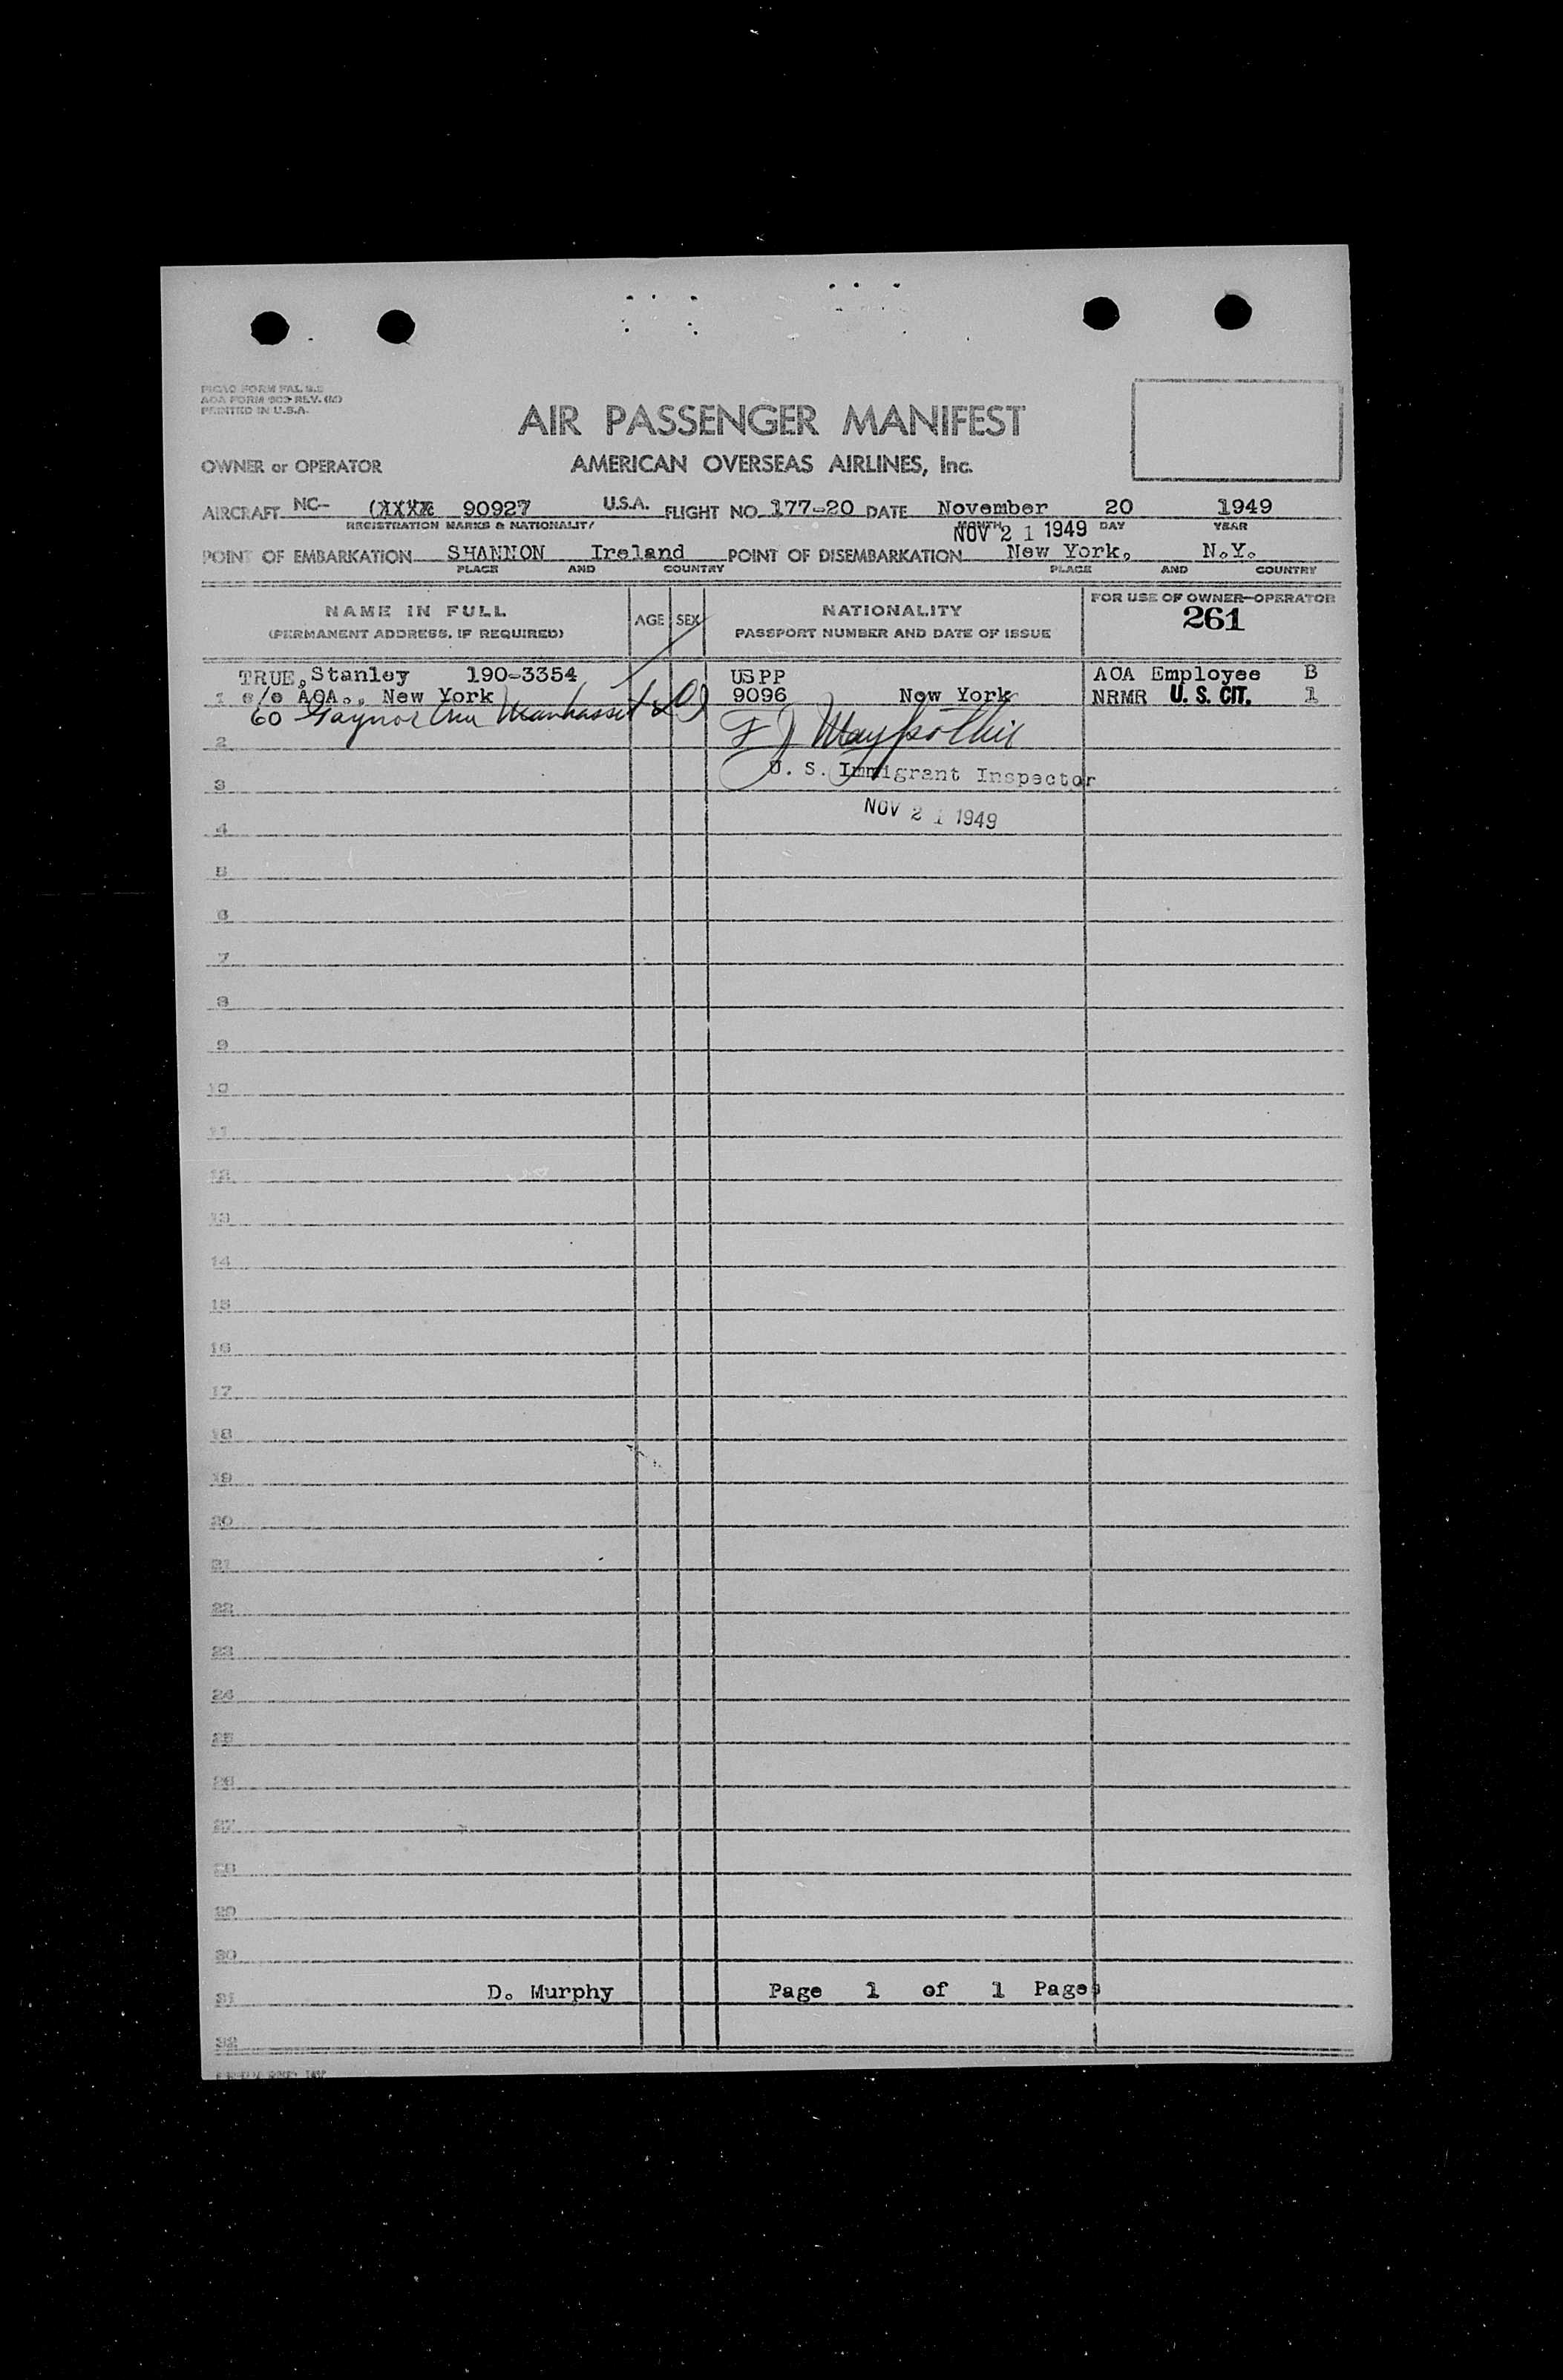 PICAO FORM FAL
AOA FORM REV.
PRINTED IN U.S.A.
AIR PASSENGER MANIFEST
OWNER or OPERATOR AMERICAN OVERSEAS AIRLINES, Inc.
AIRCRAFT NC- (XXXX 90927 U.S.A. FLIGHT NO. 177-20 DATE November 20 1949
REGISTRATION MARKS & NATIONALITY MONTH DAY YEAR
NOV 21 1949
POINT OF EMBARKATION SHANNON Ireland POINT OF DISEMBARKATION New York, N.Y.
PLACE AND COUNTRY PLACE AND COUNTRY
NAME IN FULL AGE SEX NATIONALITY FOR USE OF OWNER-OPERATOR
(PERMANENT ADDRESS, IF REQUIRED) PASSPORT NUMBER AND DATE OF ISSUE 261
TRUE, Stanley 190-3354 USPP AOA Employee B
1 c/o AOA., New York 9096 New York NRMR U. S. CIT. 1
60 Gaynor Ave Manhasset
2
U. S. Immigrant Inspector
3
NOV 21 1949
4
5
6
7
8
9
10
11
12
13
14
15
16
17
18
19
20
21
22
23
24
25
26
27
28
29
30
31 D. Murphy Page 1 of 1 Pages
32